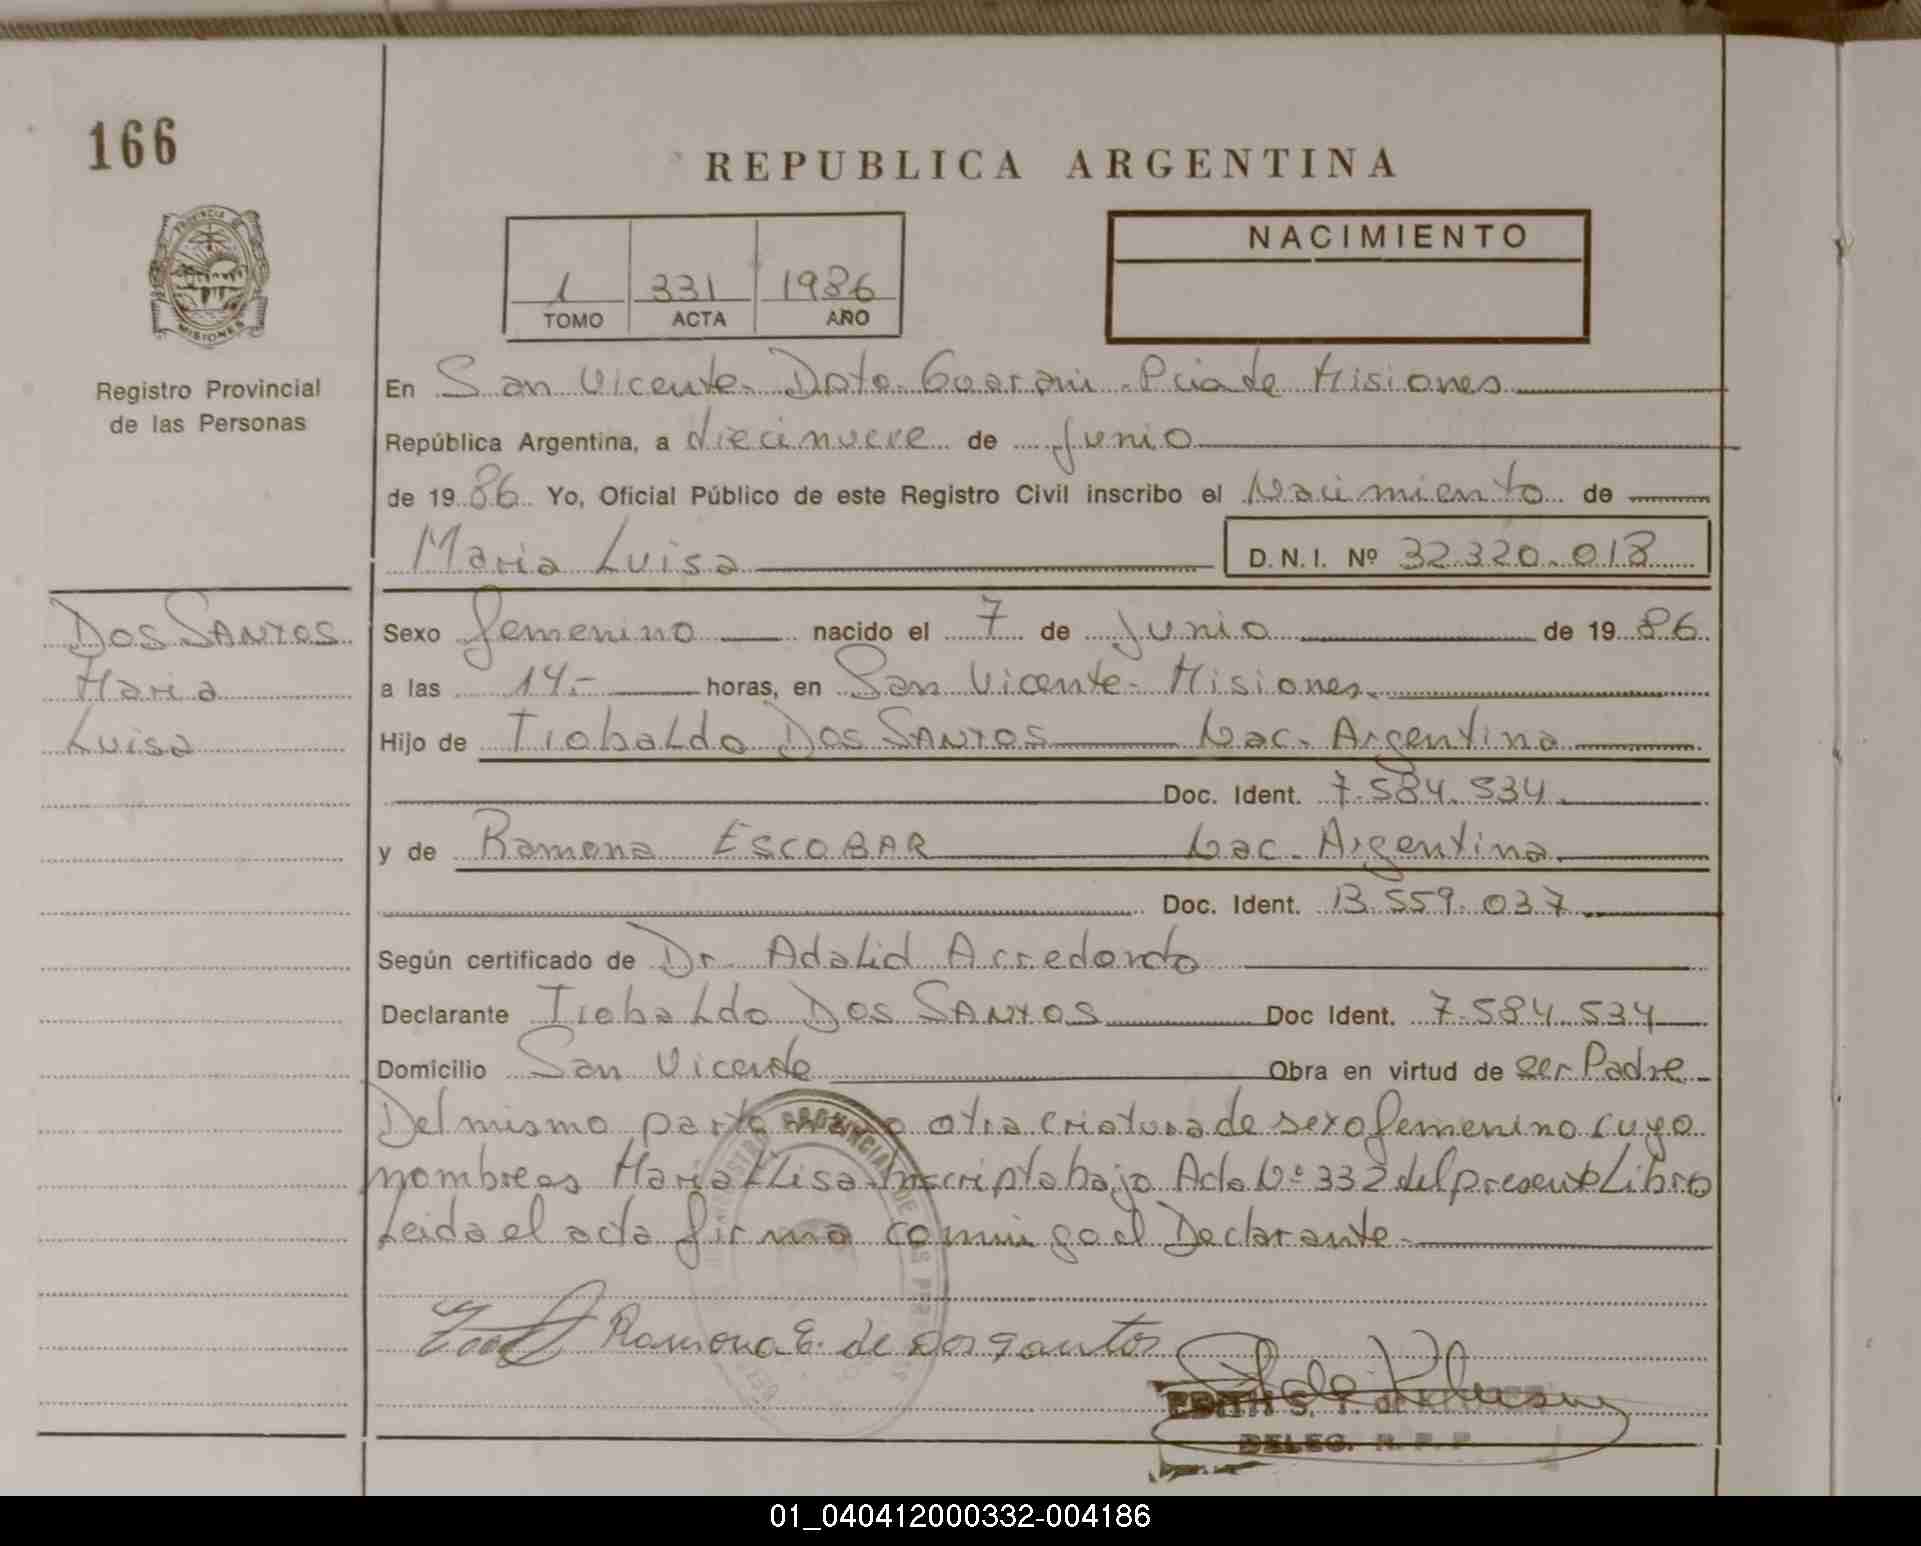 166
REPUBLICA ARGENTINA
PROVINCIA DE
MISIONES
Registro Provincial
de las Personas
1 331 1986
TOMO ACTA AÑO
NACIMIENTO
En San Vicente - Dpto. Guarani - Pcia de Misiones
República Argentina, a diecinueve de Junio
de 1986 Yo, Oficial Público de este Registro Civil inscribo el Nacimiento de
Maria Luisa D.N.I. Nº 32.320.018
Dos SANTOS
Maria
Luisa
Sexo femenino nacido el 7 de Junio de 1986
a las 14.- horas, en San Vicente - Misiones.
Hijo de Tiobaldo Dos SANTOS Nac. Argentina
Doc. Ident. 7.584.534
y de Ramona ESCOBAR Nac. Argentina
Doc. Ident. 13.559.037
Según certificado de Dr. Adalid Arredondo
Declarante Tiobaldo Dos SANTOS Doc Ident. 7.584.534
Domicilio San Vicente Obra en virtud de ser Padre
Del mismo parto otra criatura de sexo femenino cuyo
nombre es Maria Elisa inscripta bajo Acta Nº 332 del presente Libro
Leida el acta firma conmigo el Declarante.
Ramona E. de Dos Santos
EDITH S. T. de
DELEG. R. P. P.
01_040412000332-004186